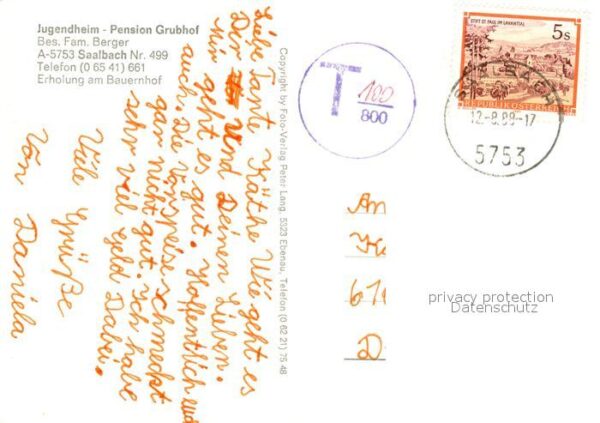 Jugendheim - Pension Grubhof
Bes. Fam. Berger
A-5753 Saalbach Nr. 499
Telefon (0 65 41) 661
Erholung am Bauernhof
Liebe Tante Käthe Wie geht es
Dir Und Deinen Lieben.
Mir geht es gut. Hoffentlich und
auch. Die schmeckt
gar nicht gut. Ich habe
sehr viel Geld Dabei.
Viele Grüße
Von Daniela
Copyright by Foto-Verlag Peter Lang, 5323 Ebenau, Telefon (0 62 21) 75 48
T
100
800
STIFT ST. PAUL IM LAVANTTAL
5s
REPUBLIK ÖSTERREICH
12.-8.89-17
5753
An
61
D
privacy protection
Datenschutz